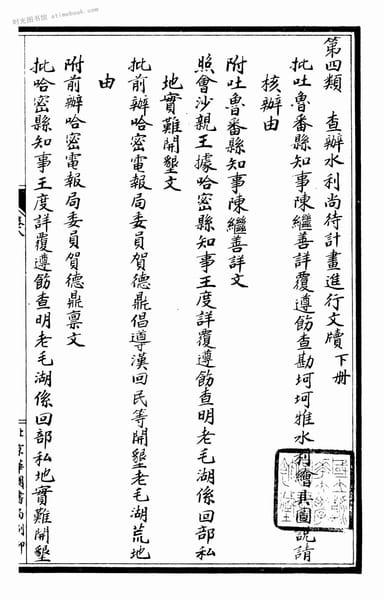 时光图书馆
etimebook.com
第四類 查辦水利尚待計畫進行文牘下册
批吐魯番縣知事陳繼善詳覆遵飭查勘坷坷雅水利繪具圖說請
核辦由
附吐魯番縣知事陳繼善詳文
照會沙親王據哈密縣知事王度詳覆遵飭查明老毛湖係回部私
地實難開墾文
批前辦哈密電報局委員賀德鼎倡導漢回民等開墾老毛湖荒地
由
附前辦哈密電報局委員賀德鼎禀文
批哈密縣知事王度詳覆遵飭查明老毛湖係回部私地實難開墾